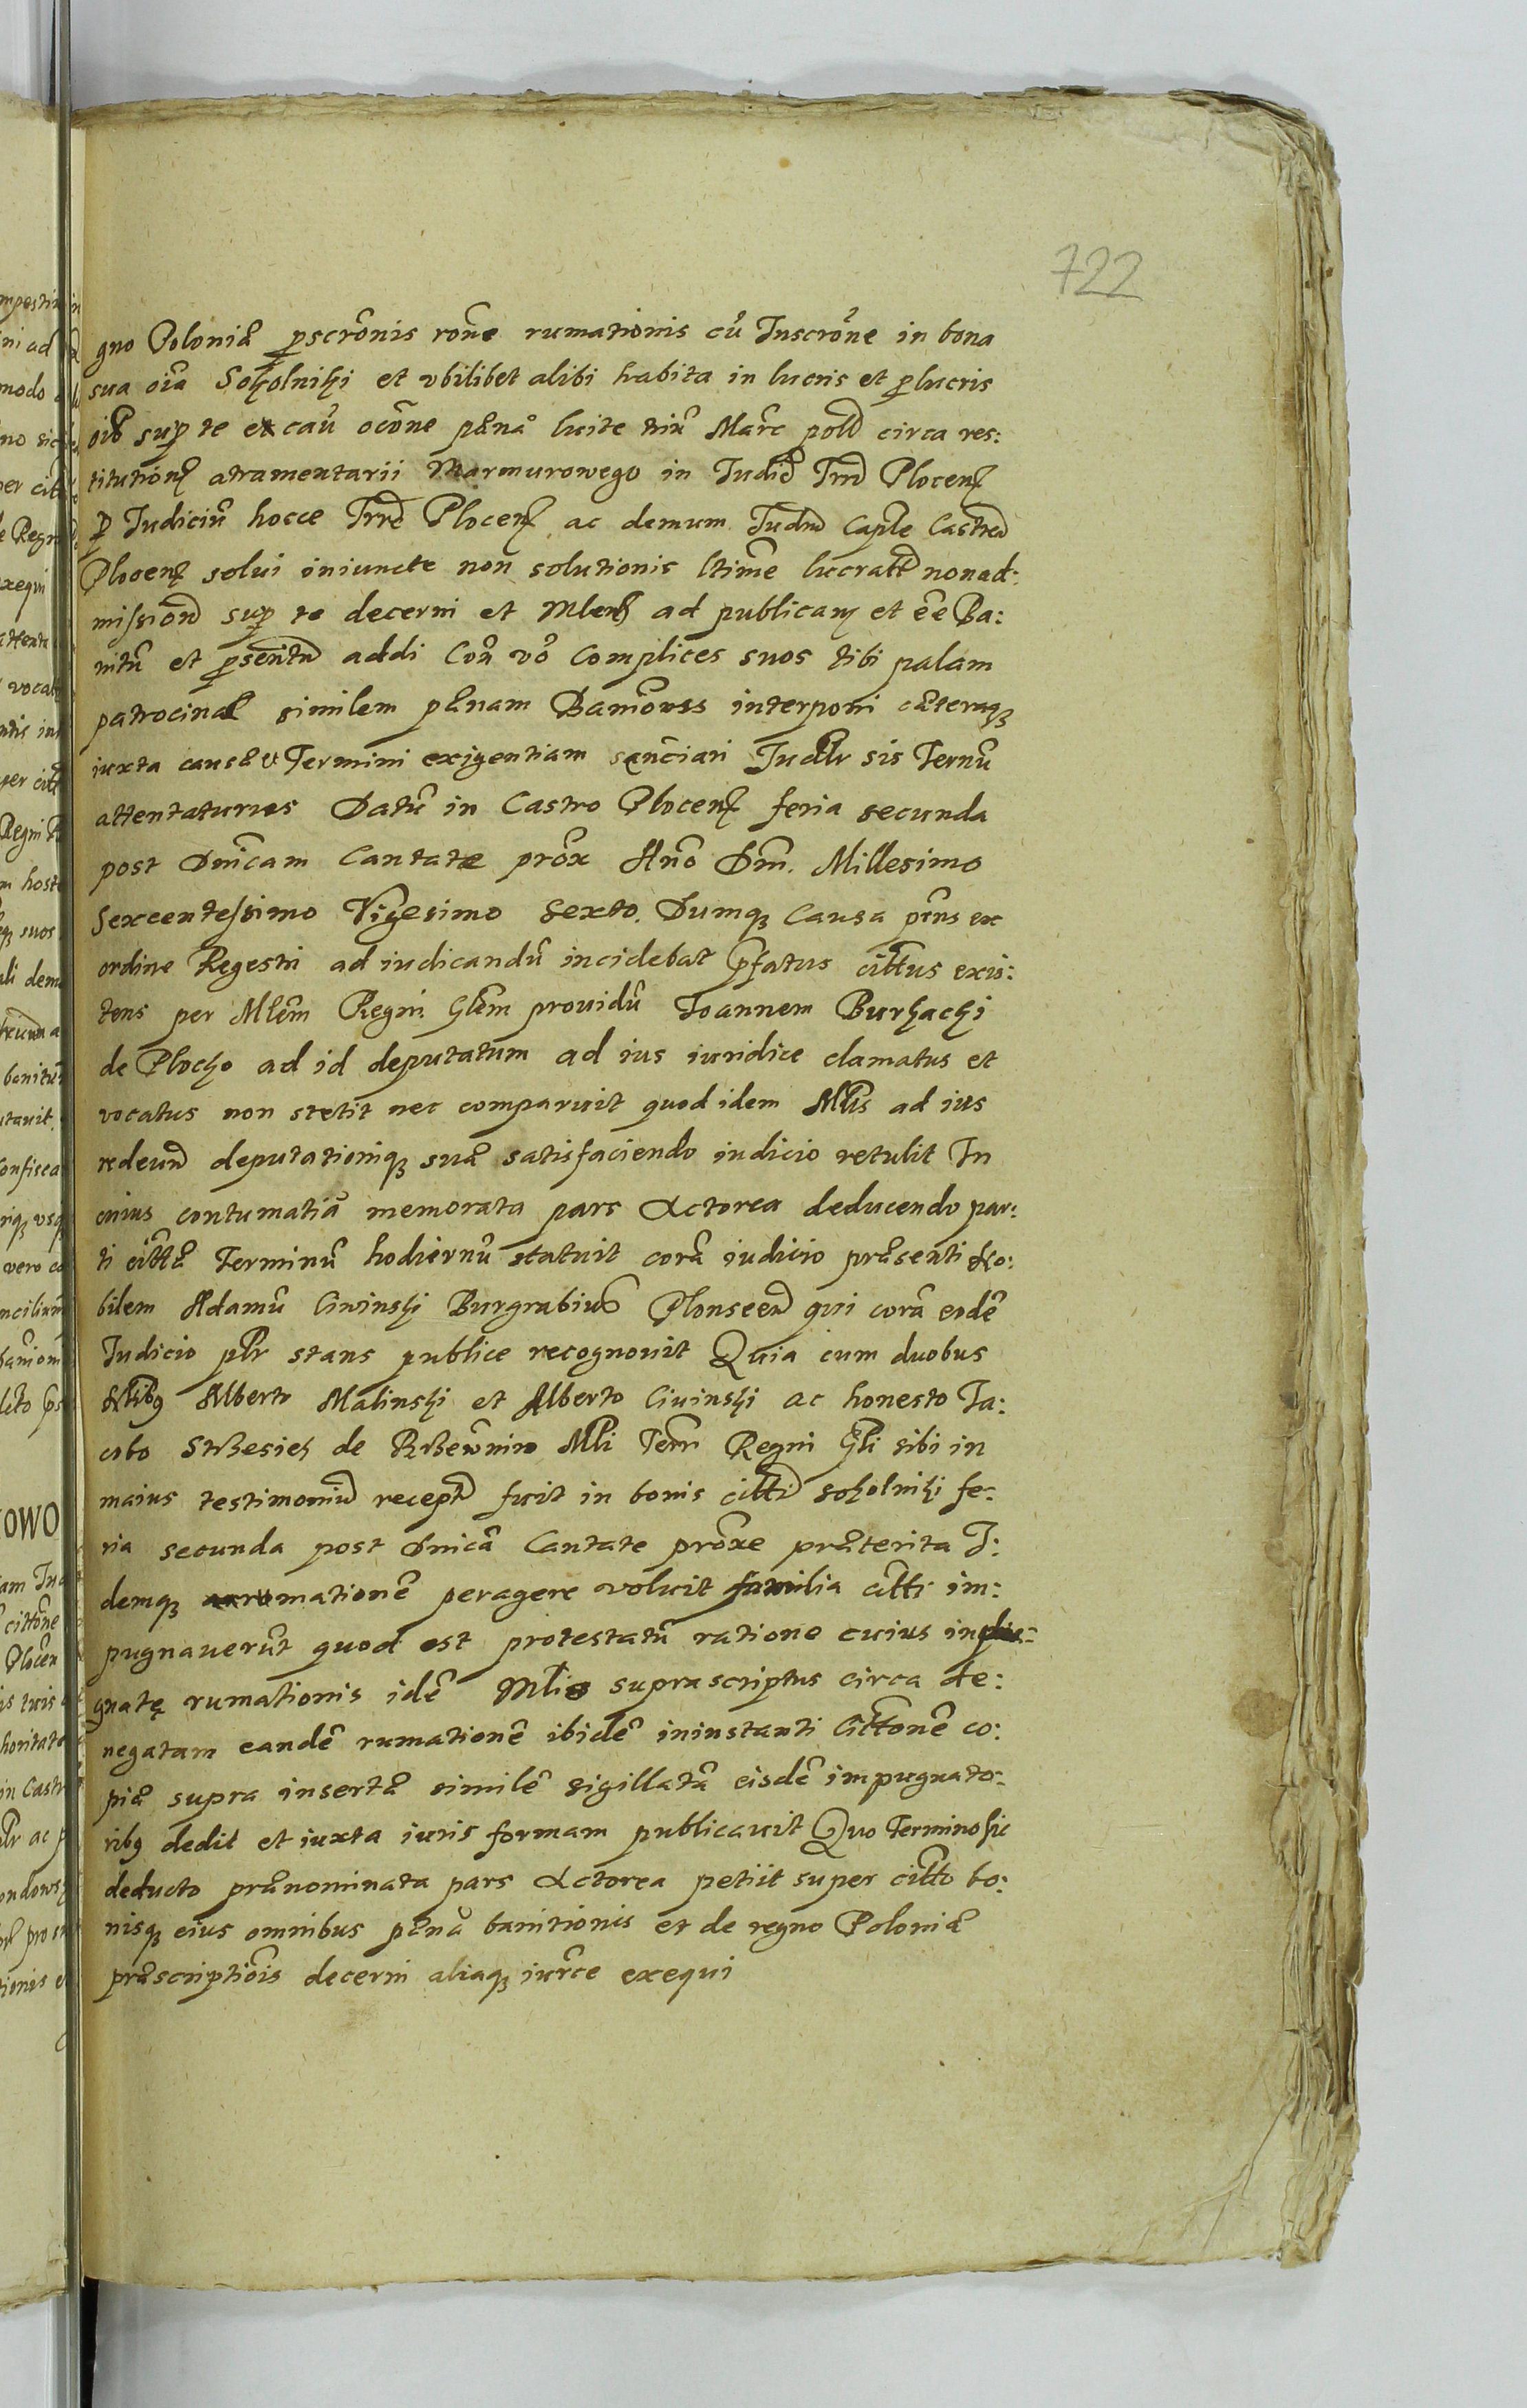 722
gno Poloniæ p̱scrõnis rõne rumationis cũ Inscrõne in bona
sua oĩa Sokolniki et vbilibet alibi habita in lucris et p̱lucris
sup̱ te et caũ ocõne pænæ luite triũ Marc poll circa res:
titutionẽ atramentarii Marmurowego in Judic Trrd Plocenẽ
p̱ Judiciũ hocce Trre Plocenẽ ac demum Judm Caple Castren
Plocenẽ solui iniuncte non solutionis ltime lucrate non ad:
mission sup̱ te decerni et Mlem ad publicam et eẽ Ba:
nitũ et p̱sentm addi Coñ vo Complices suos tibi palam
patrocinal similem pænam Bannowss interponi cæteraq̃
iuxta causæ & Termini exigentiam sanciari Judlr sis Ternũ
attentaturus Datũ in Castro Plocenẽ feria secunda
post Dnĩcam Cantate prox Anno Dm̃. Millesimo
Sexcentessimo Vigesimo Sexto. Dumq̃ Causa prñs ex
ordine Regestri ad iudicandũ incidebat p̱fatus citt̃us exis:
tens per Mlem Regni Glem prouidũ Joannem Burkacki
de Plocko ad id deputatum ad ius iuridice clamatus et
vocatus non stetit nec comparuit quod idem Mlis ad ius
redeun deputationiq̃ suæ satisfaciendo iudicio retulit In
cuius contumatiã memorata pars Actorea deducendo par:
ti citt̃æ Terminũ hodiernũ statuit corã iudicio præsenti No:
bilem Adamũ Ciwinski Burgrabiũ Plonscen qui corã eodẽ
Iudicio plr stans publice recognouit Quia cum duobus
Nlibq̃ Alberto Malinski et Alberto Ciuinski ac honesto Ja:
cobo de Mli Tem Regni Gli sibi in
maius testimoniũ recept fuit in bonis citt̃i Sokolniki fe:
ria secunda post Dnicã Cantate proxe præterita I:
demq̃ rumationẽ peragere voluit familia citt̃i im:
pugnauerũt quod est protestatũ ratione cuius
gnatę rumationis idẽ Mlis suprascriptus circa de:
negatam eandẽ rumationẽ ibidẽ ininstanti Citt̃onẽ co:
piæ supra insertæ similẽ sigillatã eisdẽ impugnato:
ribq̃ dedit et iuxta iuris formam publicauit Quo Termino sic
deducto prænominata pars Actorea petiit super citt̃o bo:
nisq̃ eius omnibus pænã banitionis et de regno Poloniæ
præscriptiõis decerni aliaq̃ iurce exequi